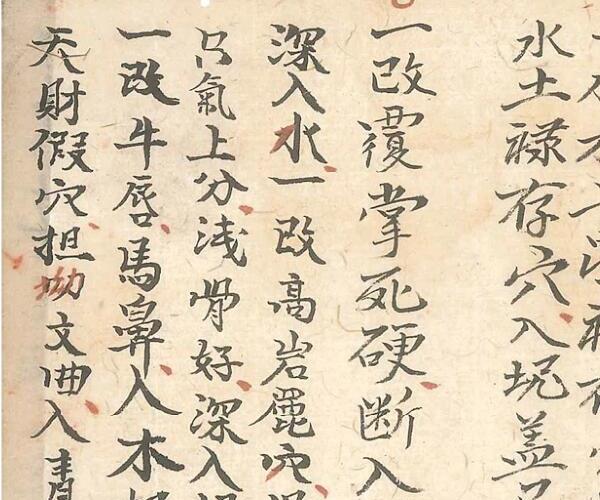 水土祿存穴入坭蓋
一改覆掌死硬断入
深入水一改高岩罹穴
只氣上分浅骨好深入
一改牛唇馬鼻入木
天財假穴担坳文曲入